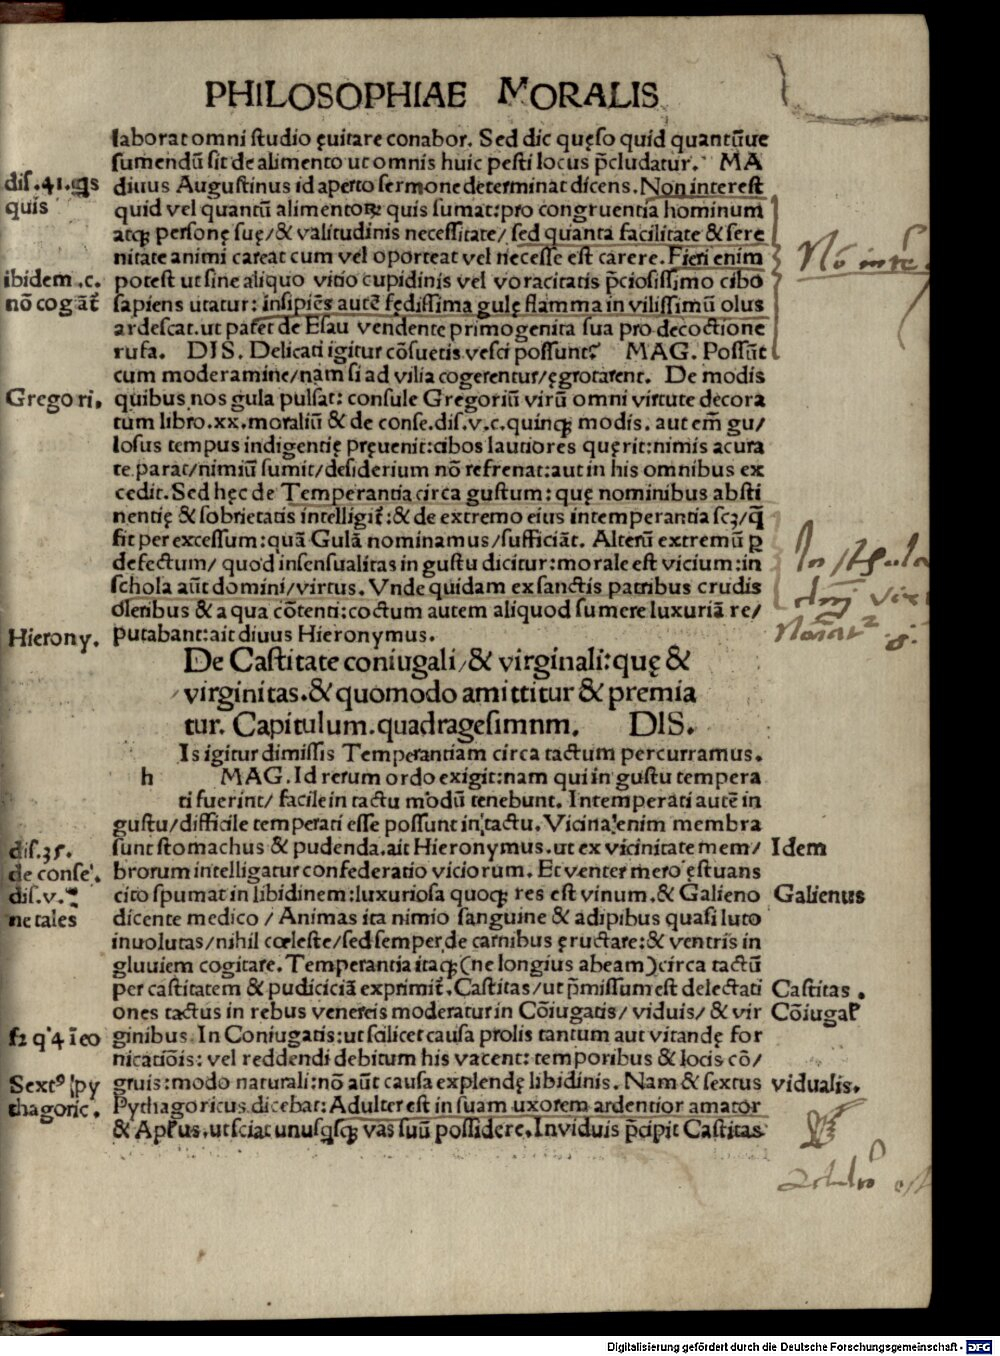 PHILOSOPHIAE MORALIS
laborat omni studio ęuitare conabor. Sed dic quęso quid quantũue
sumendũ sit de alimento ut omnis huic pesti locus p̄cludatur. MA
dis .41. qs diuus Augustinus id aperto sermone determinat dicens. Non interest
quis quid vel quantũ alimentoꝝ quis sumat: pro congruentia hominum
atqꝫ personę suę/ & valitudinis necessitate/ sed quanta facilitate & sere
nitate animi careat cum vel oporteat vel necesse est carere. Fieri enim
ibidem .c. potest ut sine aliquo vitio cupidinis vel voracitatis p̄ciosissimo cibo
nõ cogãt̃ sapiens utatur: insipiẽs autẽ fędissima gulę flamma in vilissimũ olus
ardescat. ut patet de Esau vendente primogenita sua pro decoctione
rufa. DIS. Delicati igitur cõsuetis vesci possunt? MAG. Possũt
cum moderamine/ nam si ad vilia cogerentur/ ęgrotarent. De modis
Gregori. quibus nos gula pulsat: consule Gregoriũ virũ omni virtute decora
tum libro .xx. moraliũ & de conse. dis. v. c. quinqꝫ modis. aut em̃ gu/
losus tempus indigentię pręuenit: cibos lautiores quęrit: nimis acura
te parat/ nimiũ sumit/ desiderium nõ refrenat: aut in his omnibus ex
cedit. Sed hęc de Temperantia circa gustum: quę nominibus absti
nentię & sobrietatis intelligit̃: & de extremo eius intemperantia scꝫ/ q̃
fit per excessum: quã Gulã nominamus/ sufficiãt. Alterũ extremũ ꝑ
defectum/ quod insensualitas in gustu dicitur: morale est vicium: in
schola aũt domini/ virtus. Vnde quidam ex sanctis patribus crudis
oleribus & aqua cõtenti: coctum autem aliquod sumere luxuriã re/
Hierony. putabant: ait diuus Hieronymus.
De Castitate coniugali/ & virginali: quę &
virginitas. & quomodo amittitur & premia
tur. Capitulum. quadragesimnm. DIS.
Is igitur dimissis Temperantiam circa tactum percurramus.
h MAG. Id rerum ordo exigit: nam qui in gustu tempera
ti fuerint/ facile in tactu modũ tenebunt. Intemperati autẽ in
gustu/ difficile temperati esse possunt in tactu. Vicina enim membra
dis. 35. sunt stomachus & pudenda. ait Hieronymus. ut ex vicinitate mem/ Idem
de conse. brorum intelligatur confederatio viciorum. Et venter mero ęstuans
dis. v. cito spumat in libidinem: luxuriosa quoqꝫ res est vinum. & Galieno Galienus
ne tales dicente medico / Animas ita nimio sanguine & adipibus quasi luto
inuolutas/ nihil cœleste/ sed semper de carnibus ęructare: & ventris in
gluuiem cogitare. Temperantia itaqꝫ (ne longius abeam) circa tactũ
per castitatem & pudiciciã exprimit̃. Castitas/ ut p̄missum est delectati Castitas .
ones tactus in rebus venereis moderatur in Cõiugatis/ viduis/ & vir Cõiugal̃
ginibus. In Coniugatis: ut scilicet causa prolis tantum aut vitandę for
nicatiõis: vel reddendi debitum his vacent: temporibus & locis cõ/
Sextꝰ py gruis: modo naturali: nõ aũt causa explendę libidinis. Nam & sextus vidualis.
thagoric. Pythagoricus dicebat: Adulter est in suam uxorem ardentior amator
& Apl̃us. ut sciat unusqsqꝫ vas suũ possidere. In viduis p̄cipit Castitas
Digitalisierung gefördert durch die Deutsche Forschungsgemeinschaft - DFG